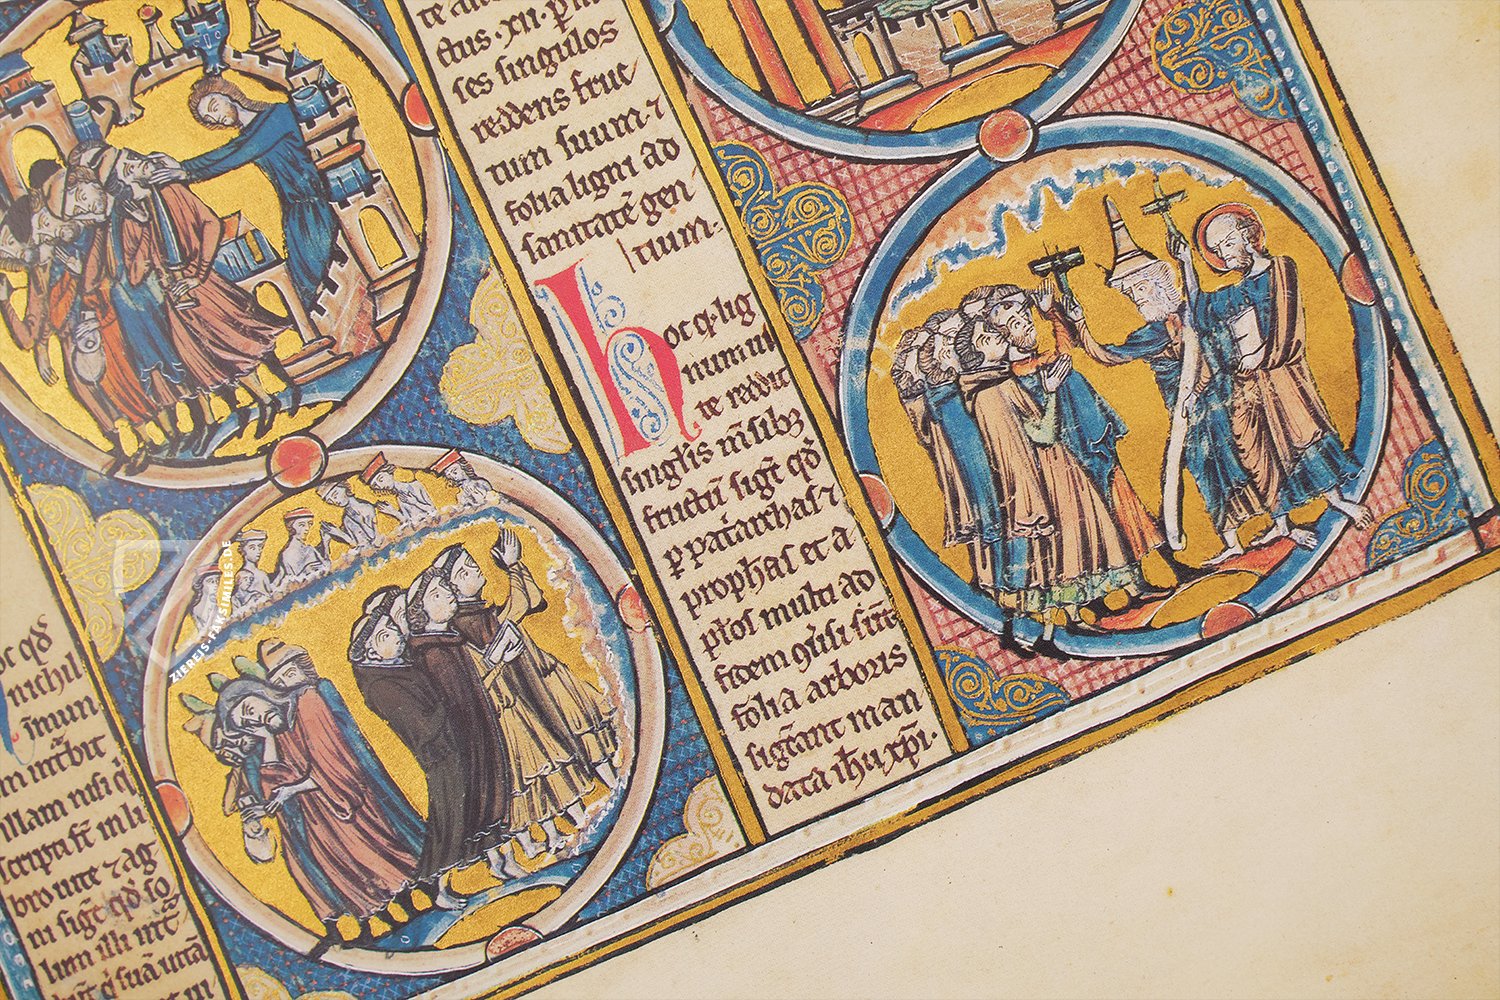 ctus · xii · p
ses singulos
reddens fruc
tum suum · ⁊
folia ligni ad
sanitatē gen
tium ·
hoc q · lig
num ui
te reddit
singlis mēsibꝫ
fructū sigt qd̄
ꝑ patriarchas ⁊
ꝑ prophas et a
pl̄os multi ad
fidem
folia arboris
sigt̄ant man
data ihu xp̄i ·
oc qd̄
nichil
īmun
m ītbit
illam nisi q
scripti st̄ in li
bro uite ⁊ ag
ni sigt̄ qd̄ so
lum illi
ZIEREIS-FAKSIMILES.DE